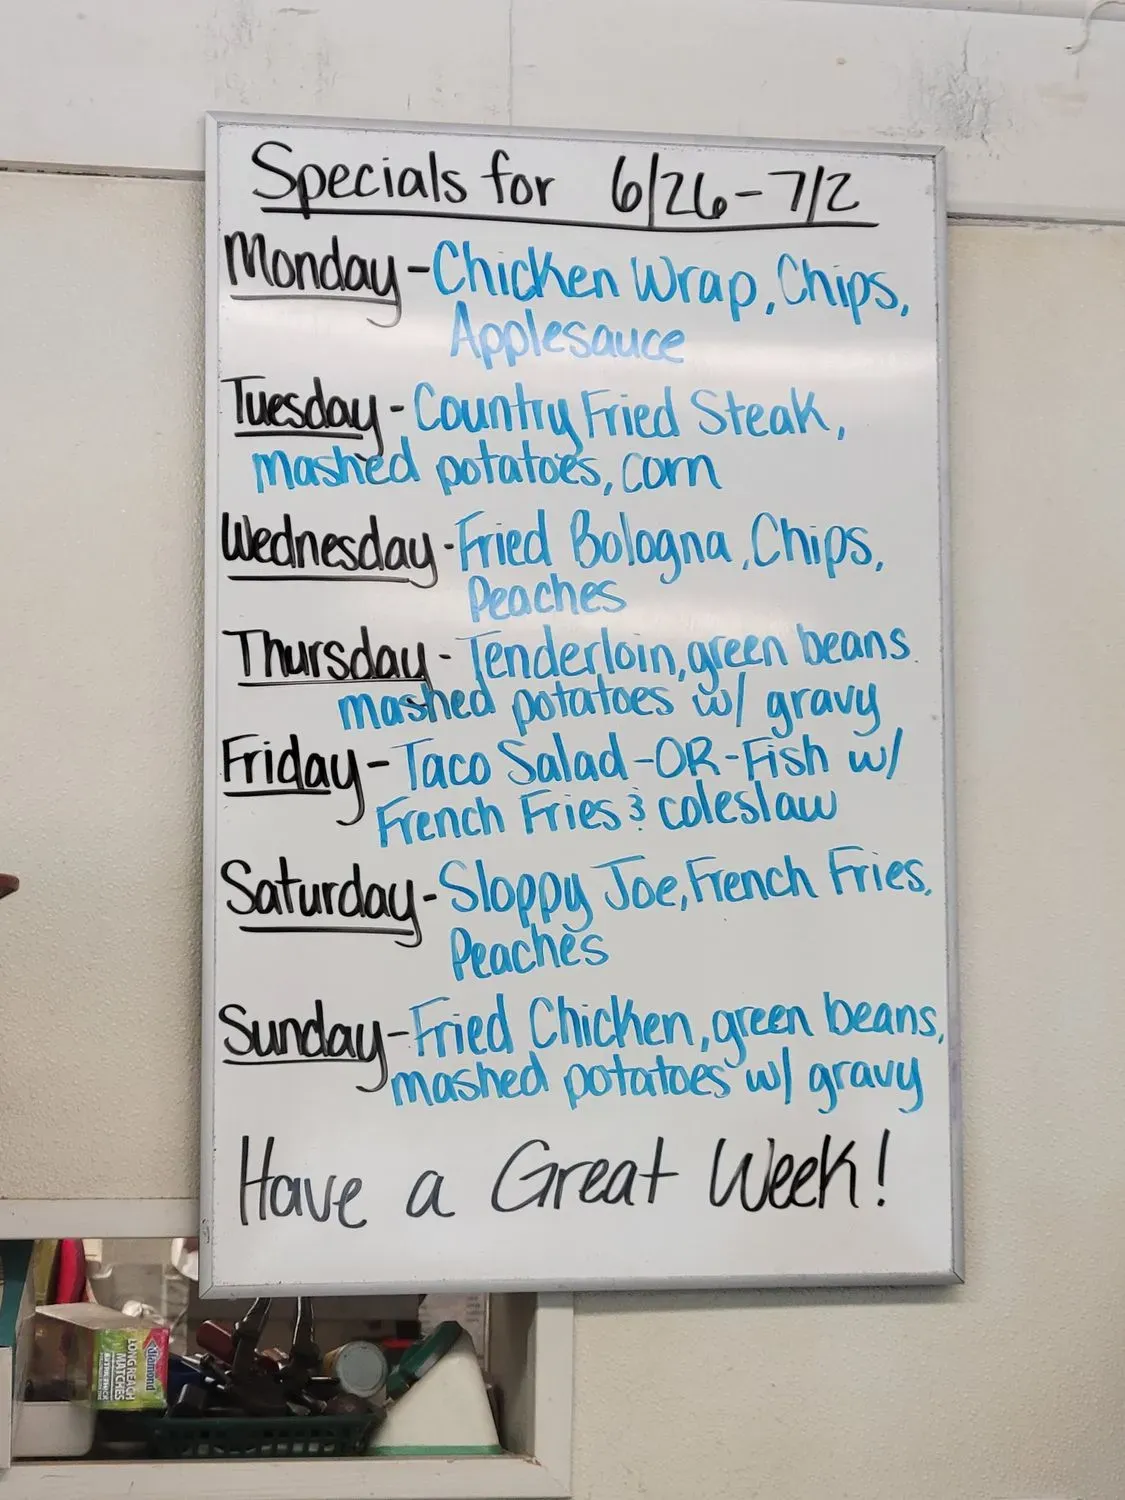 Specials for 6/26-7/2
Monday-Chicken Wrap, Chips,
Applesauce
Tuesday-Country Fried Steak,
mashed potatoes, corn
Wednesday-Fried Bologna, Chips,
Peaches
Thursday-Tenderloin, green beans
mashed potatoes w/ gravy
Friday-Taco Salad-OR-Fish w/
French Fries & coleslaw
Saturday-Sloppy Joe, French Fries,
Peaches
Sunday-Fried Chicken, green beans,
mashed potatoes w/ gravy
Have a Great Week!
Diamond
LONG REACH
MATCHES